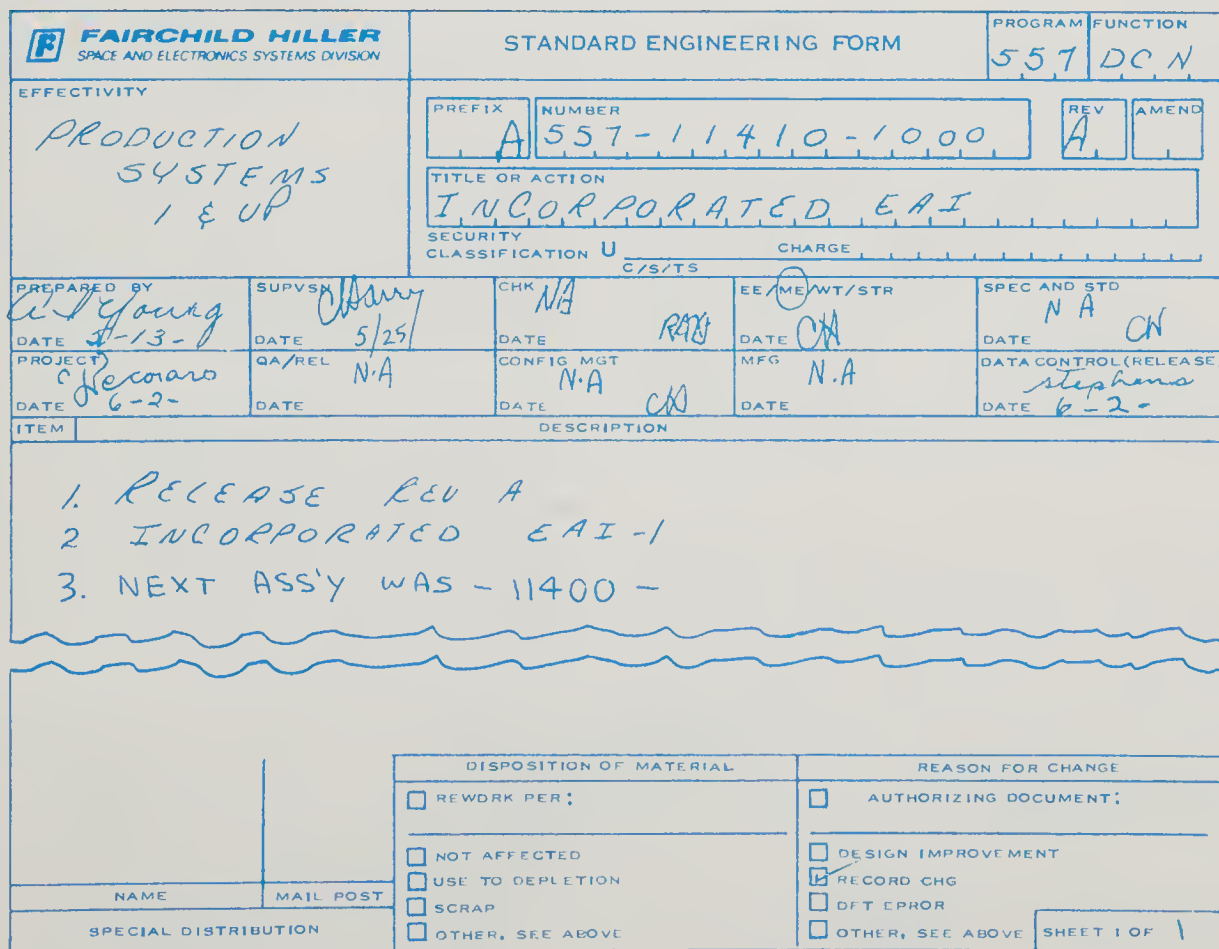 FAIRCHILD HILLER
SPACE AND ELECTRONICS SYSTEMS DIVISION
STANDARD ENGINEERING FORM
PROGRAM
557
FUNCTION
DCN
EFFECTIVITY
PRODUCTION
SYSTEMS
1 & UP
PREFIX
A
NUMBER
557-11410-1000
REV
A
AMEND
TITLE OR ACTION
INCORPORATED EAI
SECURITY
CLASSIFICATION U
C/S/TS
CHARGE
PREPARED BY
Young
DATE
SUPVSN
DATE 5/25
CHK NA
DATE
EE/ME/WT/STR
DATE CH
SPEC AND STD
N A
DATE CH
PROJECT
DATE 6-2-
QA/REL
N.A
DATE
CONFIG MGT
N.A
DATE CH
MFG
N.A
DATE
DATA CONTROL (RELEASE
stephens
DATE 6-2-
ITEM
DESCRIPTION
1. RELEASE REV A
2 INCORPORATED EAI-1
3. NEXT ASS'Y WAS - 11400 -
NAME
MAIL POST
SPECIAL DISTRIBUTION
DISPOSITION OF MATERIAL
REWDRK PER:
NOT AFFECTED
USE TO DEPLETION
SCRAP
OTHER, SEE ABOVE
REASON FOR CHANGE
AUTHORIZING DOCUMENT:
DESIGN IMPROVEMENT
RECORD CHG
DFT EPROR
OTHER, SEE ABOVE
SHEET 1 OF 1